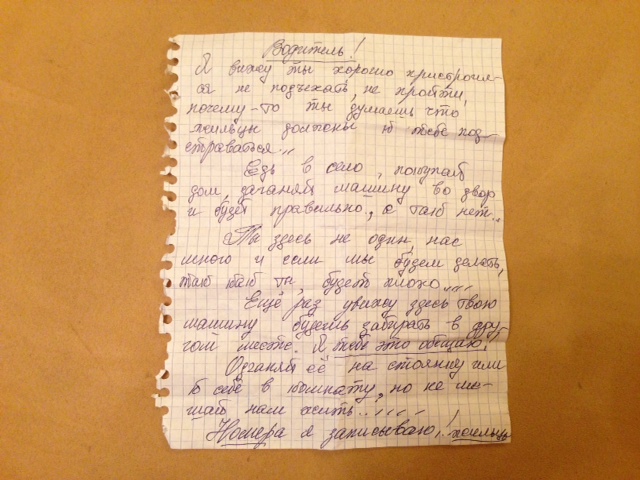 Водитель!
Я вижу ты хорошо пристроил-
ся не подъехать, не пройти,
почему-то ты думаешь что
жильцы должны к тебе под-
страваться...
Едь в село, покупай
дом, загоняй машину во двор
и будет правильно, а так нет..
Ты здесь не один, нас
много и если мы будем делать,
так как ты, будет плохо....
Ещё раз увижу здесь твою
машину будешь забирать в дру-
гом месте. Я тебе это обещаю!
Одганяй её на стоянку или
к себе в комнату, но не ме-
шай нам жить.....
Номера я записываю! жильцы